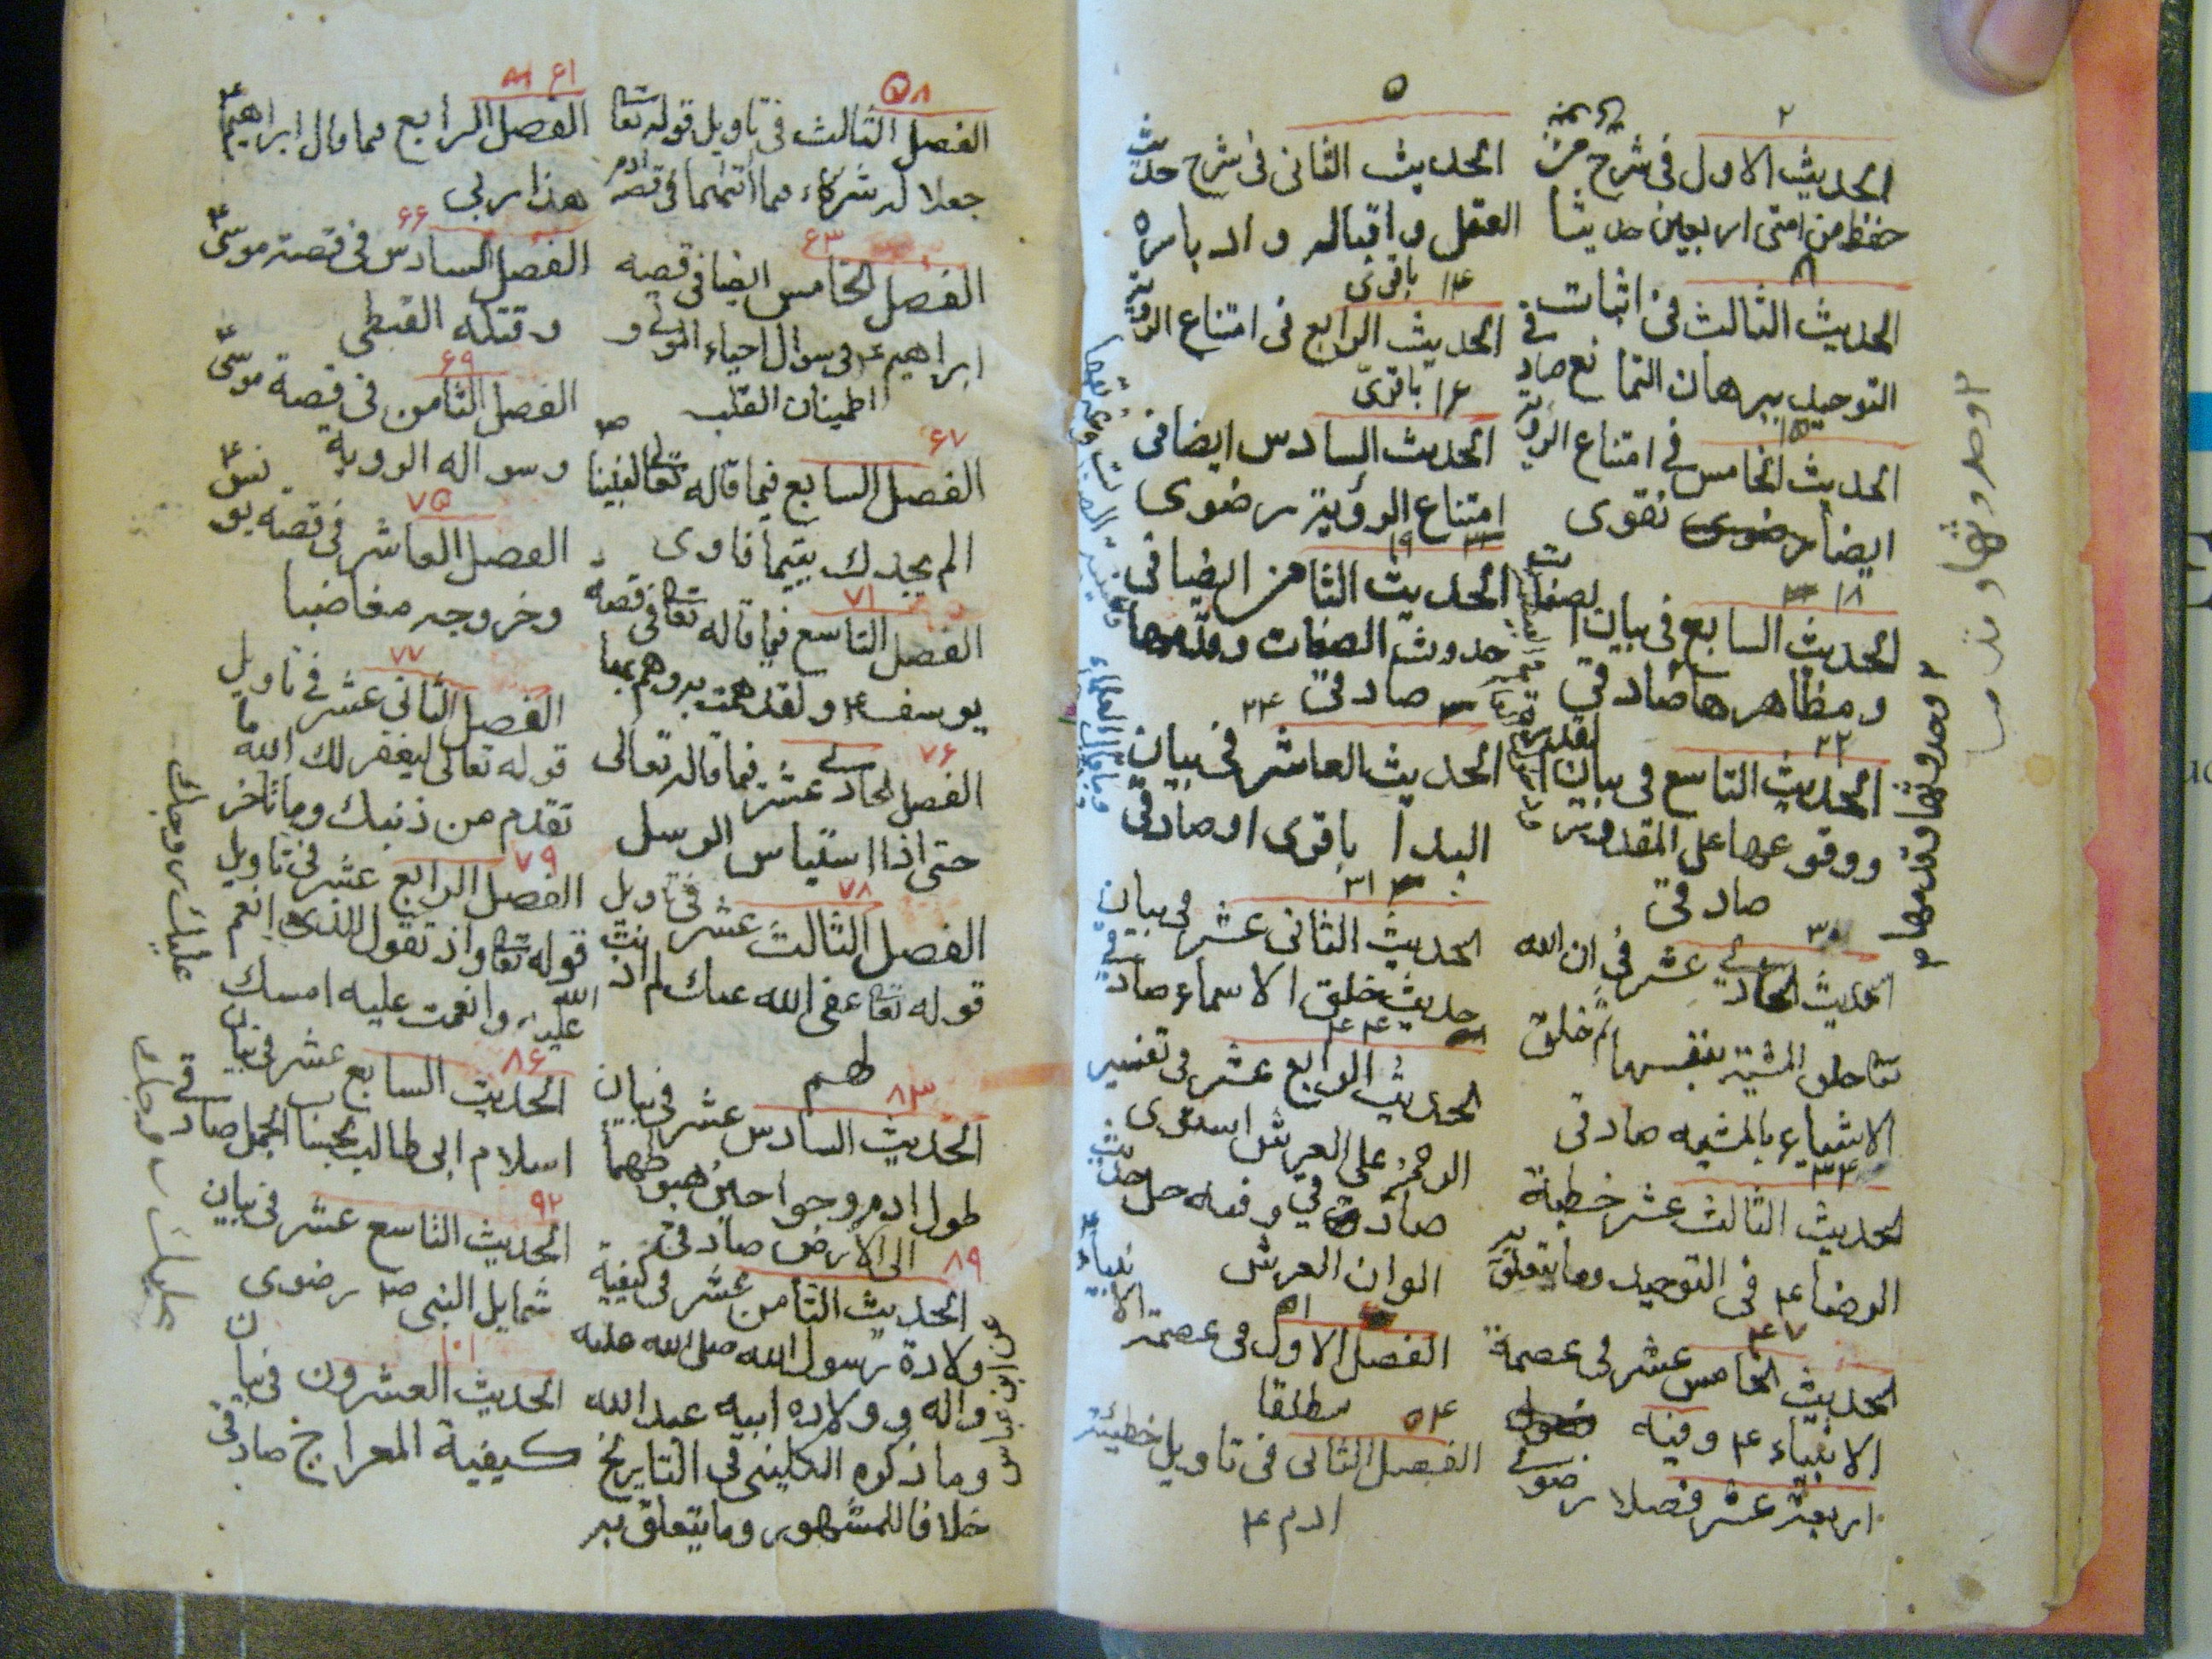 ٢
الحديث الاول في شرح من
حفظ من امتى اربعين حديثا
٥
الحديث الثانى فى شرح حديث
العقل واقباله وادباره
باقرى
٨
الحديث الثالث فى اثبات
التوحيد ببرهان التمانع صادقي
١٤
الحديث الرابع فى امتناع الروية
باقرى
١٥
الحديث الخامس في امتناع الروية
ايضا نقوى
١٦
الحديث السادس ايضا فى
امتناع الروية رضوى
١٨
الحديث السابع فى بيان الصفات
ومظاهرها صادقي
١٩
الحديث الثامن ايضا فى
حدوث الصفات وقدمها
صادقي
٢٢
الحديث التاسع فى بيان القدرة
ووقوعها على المقدور
صادقي
٢٤
الحديث العاشر فى بيان
البدا باقرى او صادقي
٣٠
الحديث الحادي عشر في ان الله
تعا خلق المشية بنفسها ثم خلق
الاشياء بالمشيه صادقي
٣١
الحديث الثانى عشر فى بيان
حديث خلق الاسماء صادقي
٣٤
الحديث الثالث عشر خطبة
الرضا ع فى التوحيد وما يتعلق به
٤٤
الحديث الرابع عشر فى تفسير
الرحمن على العرش استوى
صادقي وفيه حل حديث
الوان العرش
٤٧
الحديث الخامس عشر فى عصمة
الانبياء ع وفيه
اربعة عشر فصلا رضوي
٥١
الفصل الاول فى عصمة الانبياء ع
مطلقا
٥٤
الفصل الثانى فى تاويل خطيئة
ادم ع
وحدوثها وقدمها
٥٨
الفصل الثالث فى تاويل قوله تعا
جعلا له شركاء فيما أتيهما فى قصة ادم
٦١
الفصل الرابع فيما قال ابراهيم ع
هذا ربى
٦٣
الفصل الخامس ايضا فى قصه
ابراهيم ع فى سوال احياء الموتى و
اطمينان القلب
٦٦
الفصل السادس فى قصة موسى ع
وقتله القبطى
٦٧
الفصل السابع فيما قاله تعا لنبينا ص
الم يجدك يتيما فاوى
٦٩
الفصل الثامن فى قصة موسى ع
وسواله الروية
٧١
الفصل التاسع فيما قاله تعا فى قصة
يوسف ع ولقد همت به وهم بها
٧٥
الفصل العاشر فى قصة يونس ع
وخروجه مغاضبا
٧٦
الفصل الحادي عشر فيما قاله تعالى
حتى اذا استياس الرسل
٧٧
الفصل الثانى عشر فى تاويل
قوله تعالى ليغفر لك الله ما
تقدم من ذنبك وما تاخر
٧٨
الفصل الثالث عشر فى تاويل
قوله تعا عفى الله عنك لم اذنت
لهم
٧٩
الفصل الرابع عشر فى تاويل
قوله تعا واذ تقول للذى انعم
الله عليه وانعمت عليه امسك
عليك زوجك
٨٣
الحديث السادس عشر فى بيان
طول ادم وحوا حين هبوطهما
الى الارض صادقي
٨٦
الحديث السابع عشر فى بيان
اسلام ابى طالب بحساب الجمل صادقي
٨٩
الحديث الثامن عشر فى كيفية
ولادة رسول الله صلى الله عليه
واله وولاده ابيه عبد الله
وما ذكره الكلينى فى التاريخ
خلافا للمشهور وما يتعلق به
عن ابن عباس
٩٢
الحديث التاسع عشر فى بيان
شمايل النبى ص رضوى
١٠١
الحديث العشرون فى بيان
كيفية المعراج صادقي